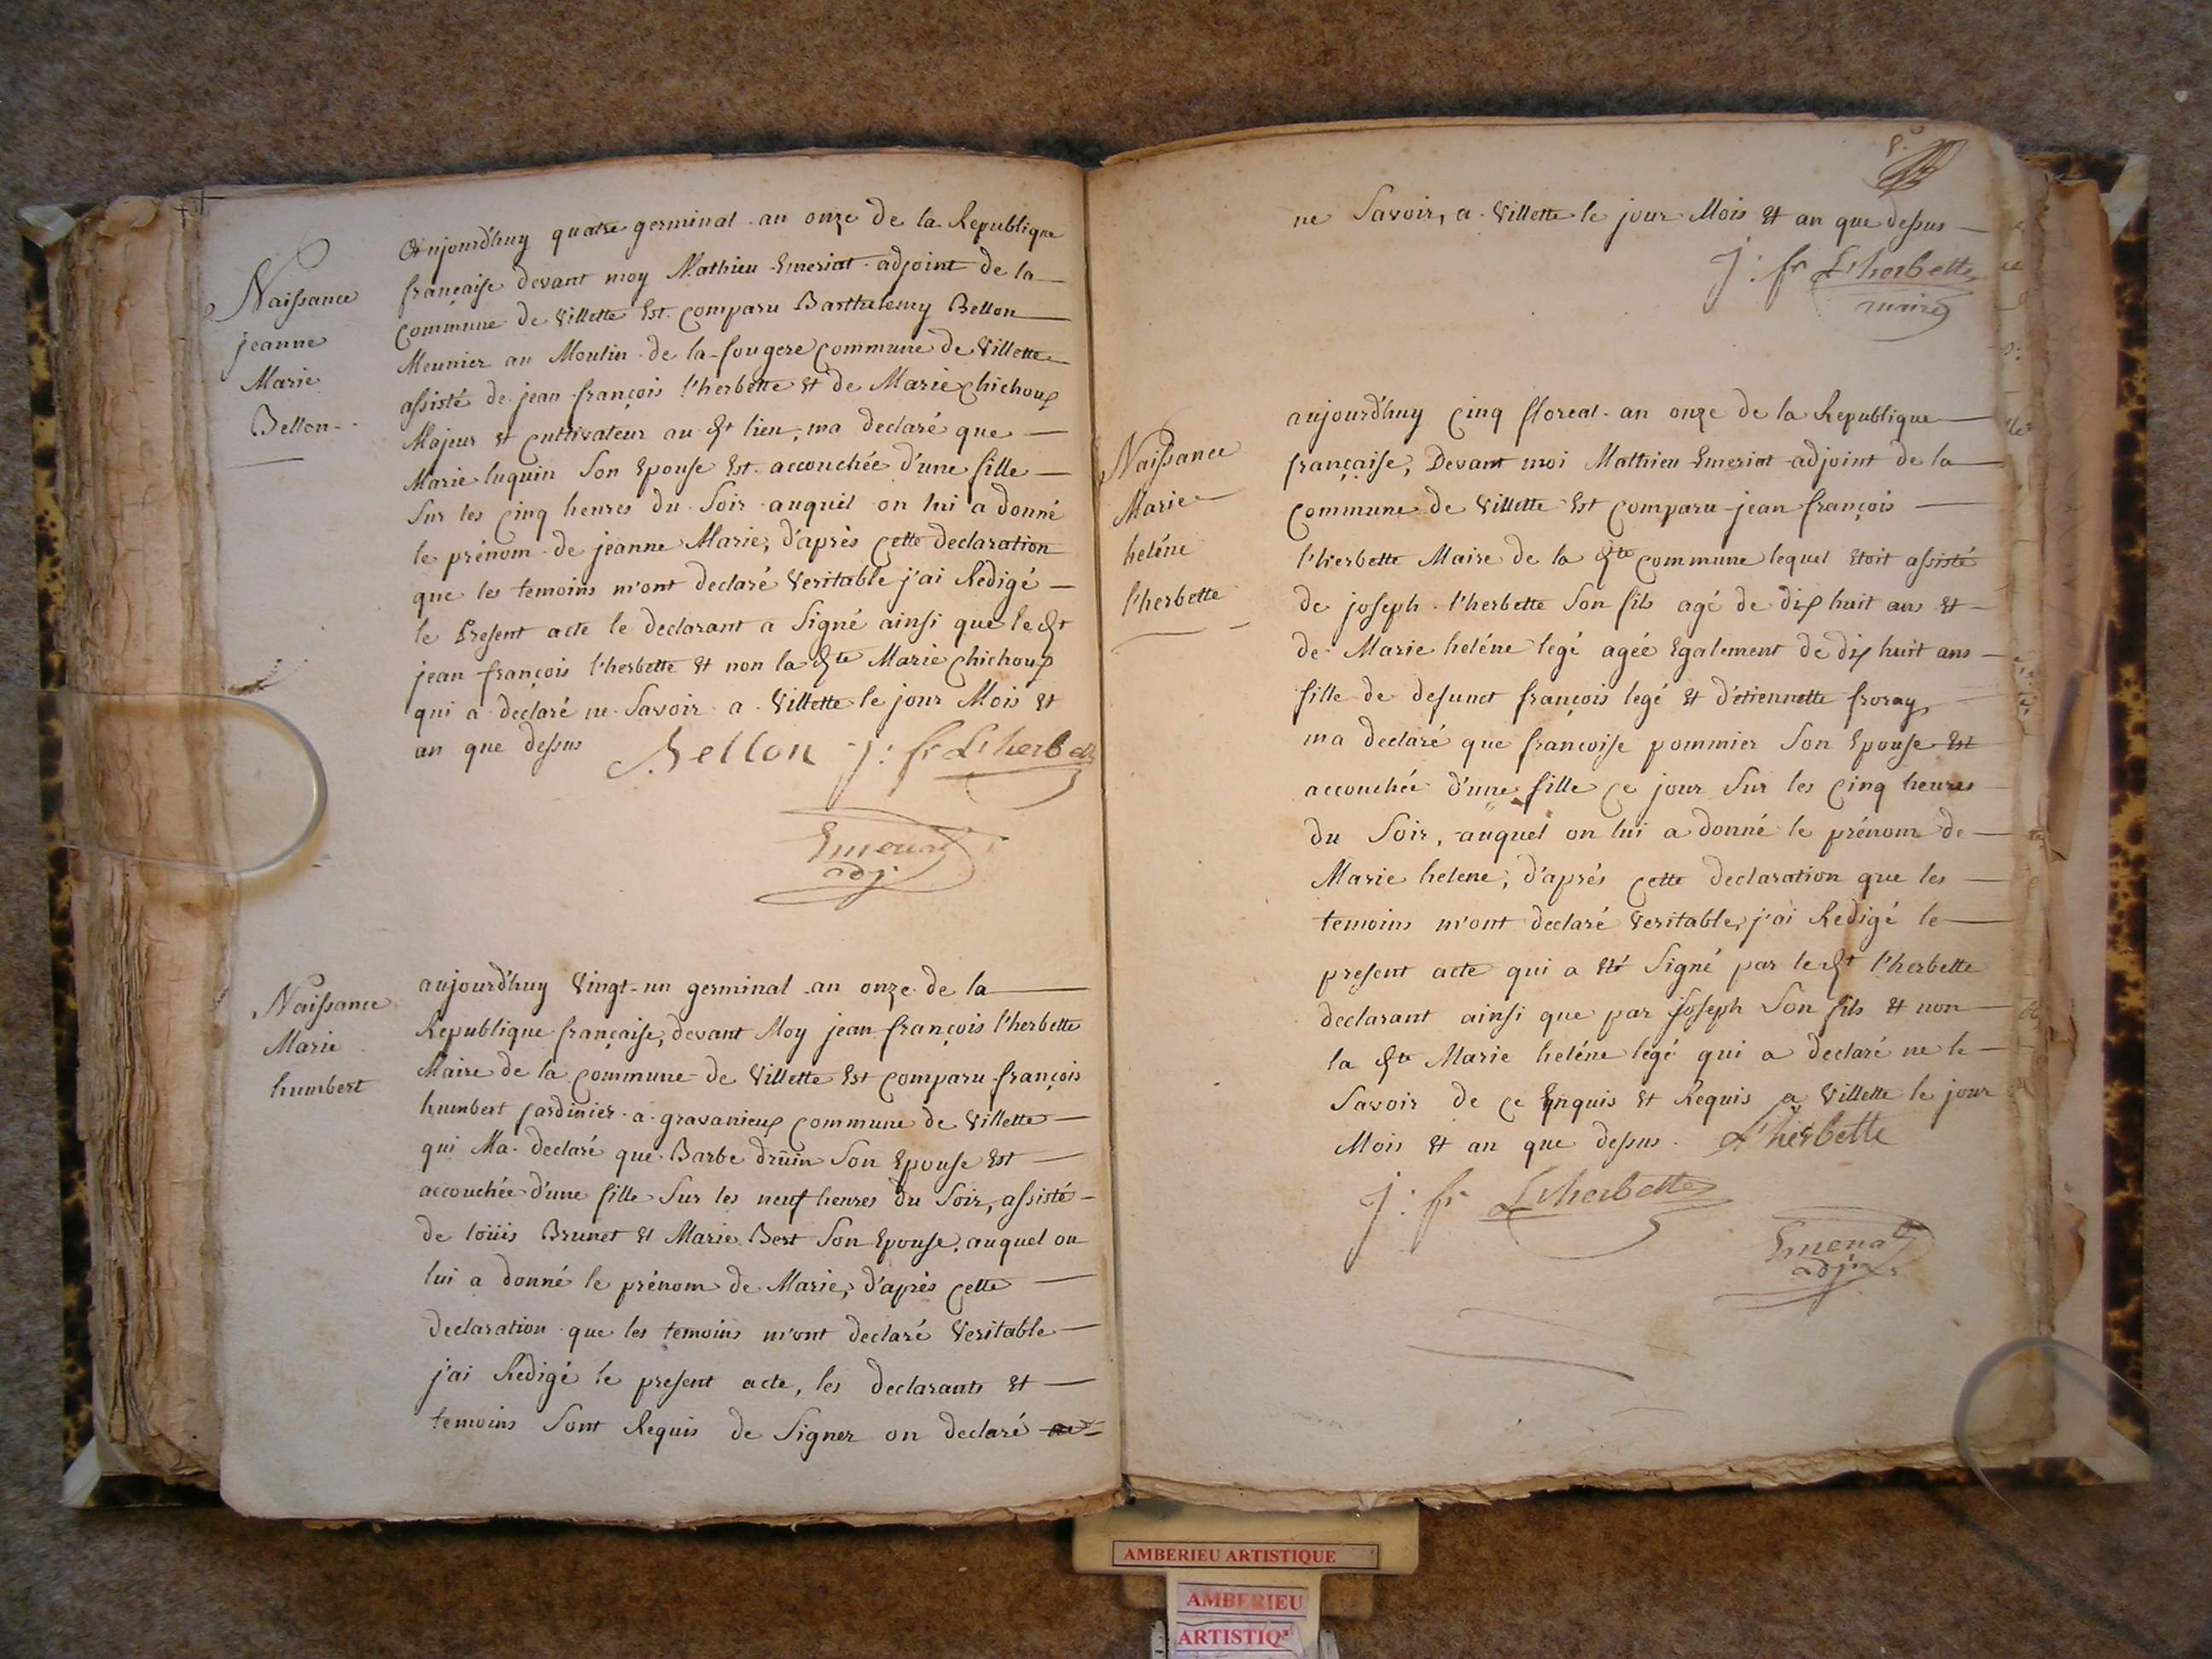 Naissance
jeanne
Marie
Bellon
Aujourd'huy quatre germinal an onze de la Republique
française devant moy Mathieu Emeriat adjoint de la
commune de Villette Est comparu Barthelemy Bellon
Meunier au Moulin de la fougere commune de Villette
assisté de jean françois l'herbette et de Marie chichoux
Majeur et cultivateur au dt lieu, ma declaré que
Marie luquin Son Epouse Est accouchée d'une fille
Sur les cinq heures du Soir auquel on lui a donné
le prénom de jeanne Marie, d'après cette declaration
que les temoins m'ont declaré Veritable j'ai Redigé
le Present acte le declarant a Signé ainsi que le dt
jean françois l'herbette Et non la dte Marie chichoux
qui a declaré ne Savoir a Villette le jour Mois Et
an que dessus Bellon J: fr L'herbette
Emeriat
adj.
Naissance
Marie
humbert
aujourd'huy Vingt-un germinal an onze de la
Republique française, devant Moy jean françois l'herbette
Maire de la commune de Villette Est comparu françois
humbert jardinier a gravanieux commune de Villette
qui Ma declaré que Barbe druin Son Epouse Est
accouchée d'une fille Sur les neuf heures du Soir, assisté
de loüis Brunet Et Marie Bert Son Epouse, auquel on
lui a donné le prénom de Marie, d'après cette
declaration que les temoins m'ont declaré Veritable
j'ai Redigé le present acte, les declarants Et
temoins Sont Requis de Signer on declaré
ne Savoir, a Villette le jour Mois Et an que dessus
J: fr L'herbette
maire
Naissance
Marie
heléne
l'herbette
aujourd'huy Cinq floreal an onze de la Republique
française, Devant moi Mathieu Emeriat adjoint de la
commune de Villette Est comparu jean françois
l'herbette Maire de la dte commune lequel Etoit assisté
de joseph l'herbette Son fils agé de dix huit ans Et
de Marie heléne legé agée Egalement de dix huit ans
fille de defunct françois legé Et d'etiennette froray
ma declaré que françoise pommier Son Epouse Est
accouchée d'une fille ce jour Sur les cinq heures
du Soir, auquel on lui a donné le prénom de
Marie helene, d'aprés cette declaration que les
temoins m'ont declaré Veritable, j'ai Redigé le
present acte qui a Eté Signé par le dt l'herbette
declarant ainsi que par joseph Son fils Et non
la dte Marie heléne legé qui a declaré ne le
Savoir de ce Enquis Et Requis a Villette le jour
Mois Et an que dessus. L'herbette
J: fr L'herbette
Emeriat
adjt
AMBERIEU ARTISTIQUE
AMBERIEU
ARTISTIQ